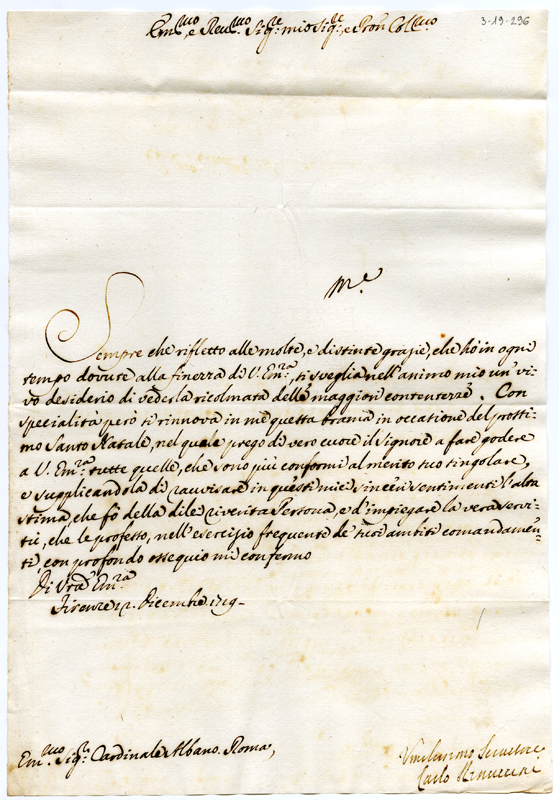 3-19-296
Em.mo, e Reu.mo Sig.re mio Sig.re, e Pron Col.mo
M.e
Sempre che rifletto alle molte, e distinte grazie, che hò in ogni
tempo dovute alla finezza di V. Em.ra, si sveglia nell'animo mio un vi-
vo desiderio di vederla ricolmata delle maggiori contentezze. Con
specialità però si rinnova in me questa brama in occasione del prossi-
mo Santo Natale, nel quale prego di vero cuore il Signore a fare godere
a V. Em.ra tutte quelle, che sono più conformi al merito suo singolare,
e supplicandola di rauuisare in questi miei sinceri sentimenti l'alta
stima, che fò della di lei riverita Persona, e d'impiegare la vera servi-
tù, che le professo, nell'esercizio frequente de' suoi ambiti comandamen-
ti, con profondo ossequio mi confermo
Di Vra Em.ra
Firenze 12. Dicembre 1719
Em.mo Sig.r Cardinale Albano. Roma,
Carlo Rinuccini